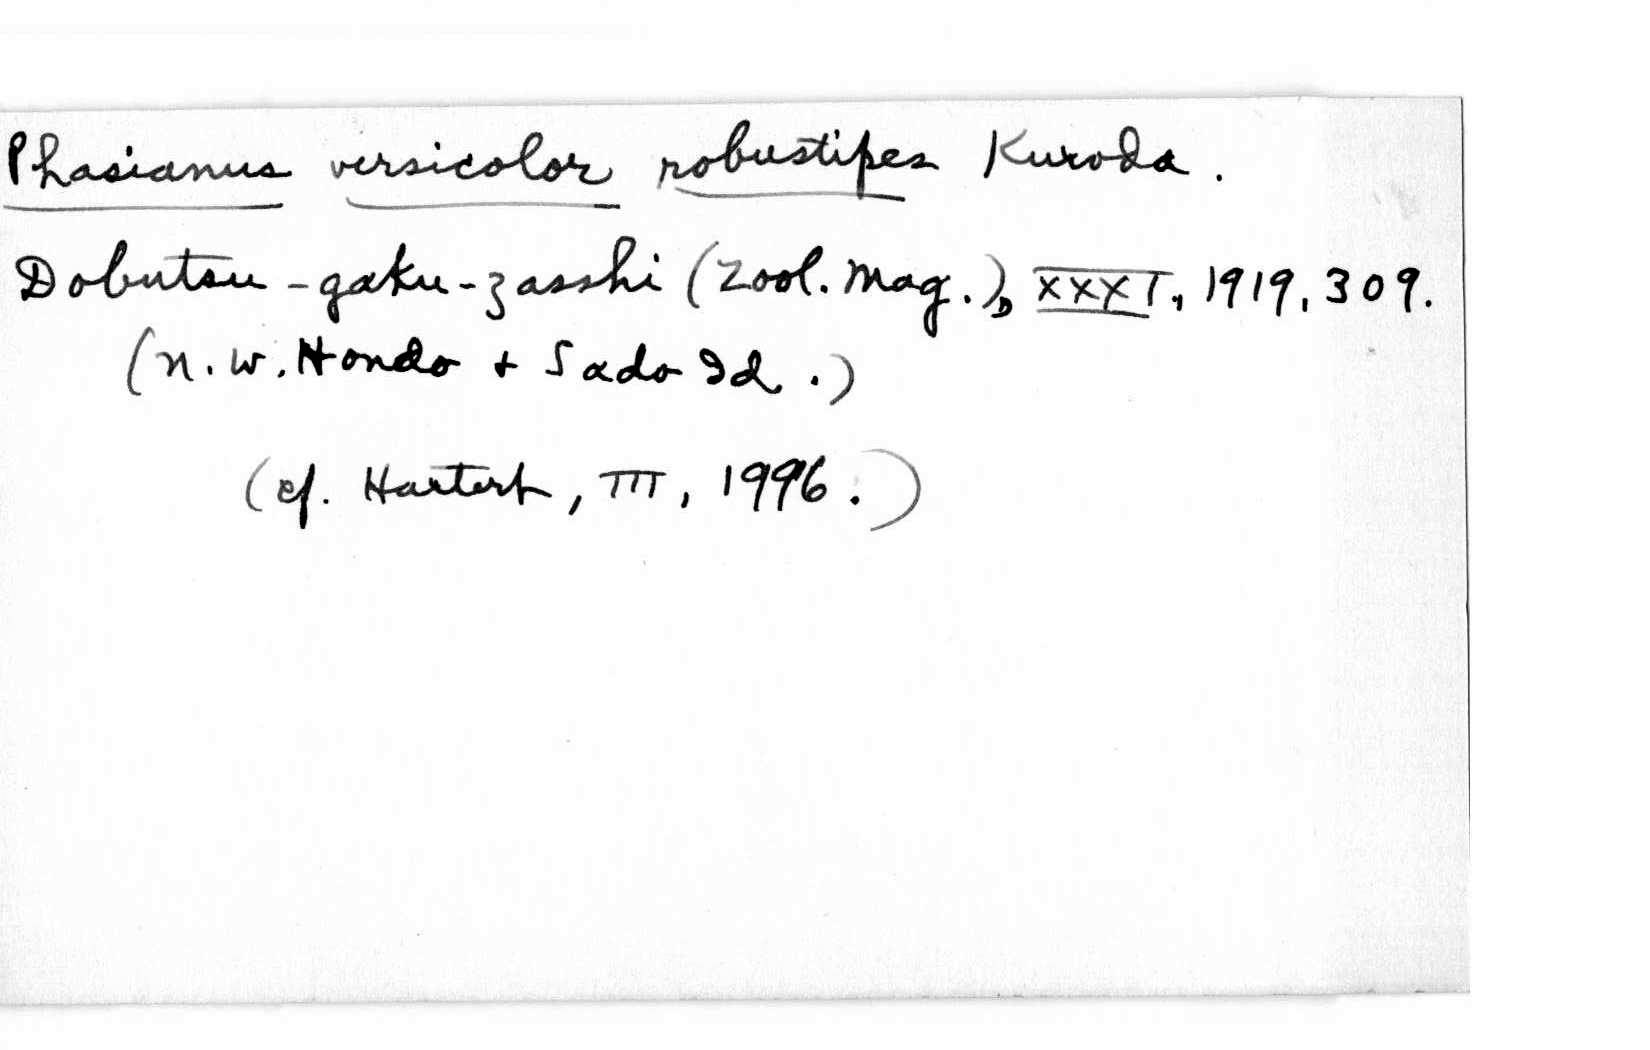 Phasianus versicolor robustipes Kuroda.
Dobutsu-gaku-zasshi (Zool. Mag.), XXXI, 1919, 309.
(N. W. Hondo + Sado Id.)
(cf. Hartert, III, 1996.)